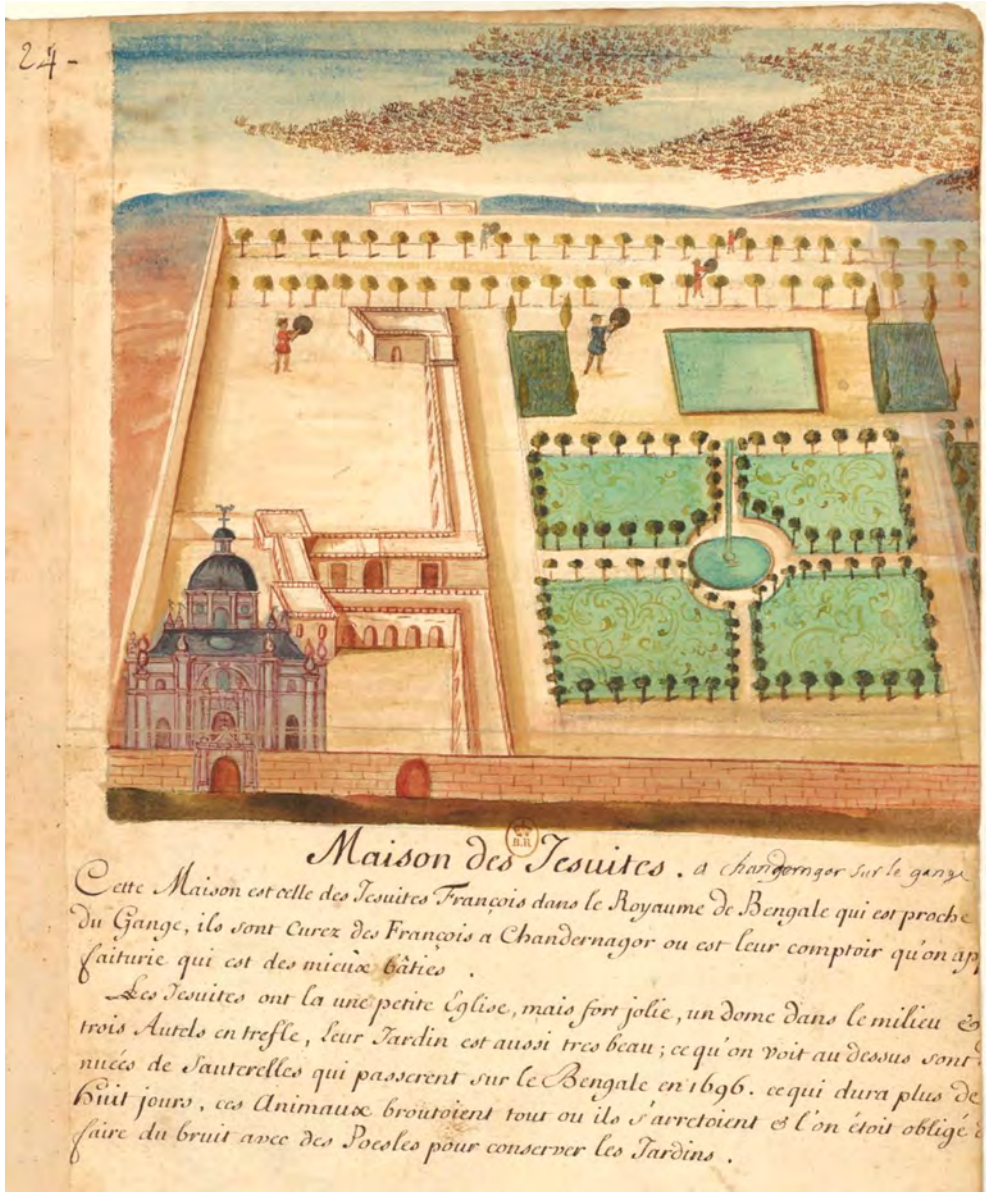 24-
B.R
Maison des Jesuites. a chandernagor sur le gange
Cette Maison est celle des Jesuites François dans le Royaume de Bengale qui est proche
du Gange, ils sont Curez des François a Chandernagor ou est leur comptoir qu'on ap
faiturie qui est des mieux bâties.
Les Jesuites ont la une petite Eglise, mais fort jolie, un dome dans le milieu &
trois Autels en trefle, Leur Jardin est aussi tres beau; ce qu'on voit au dessus sont
nuées de Sauterelles qui passerent sur le Bengale en 1696. ce qui dura plus de
huit jours, ces Animaux broutoient tout ou ils s'arretoient & l'on étoit obligé
faire du bruit avec des Poesles pour conserver les Jardins.